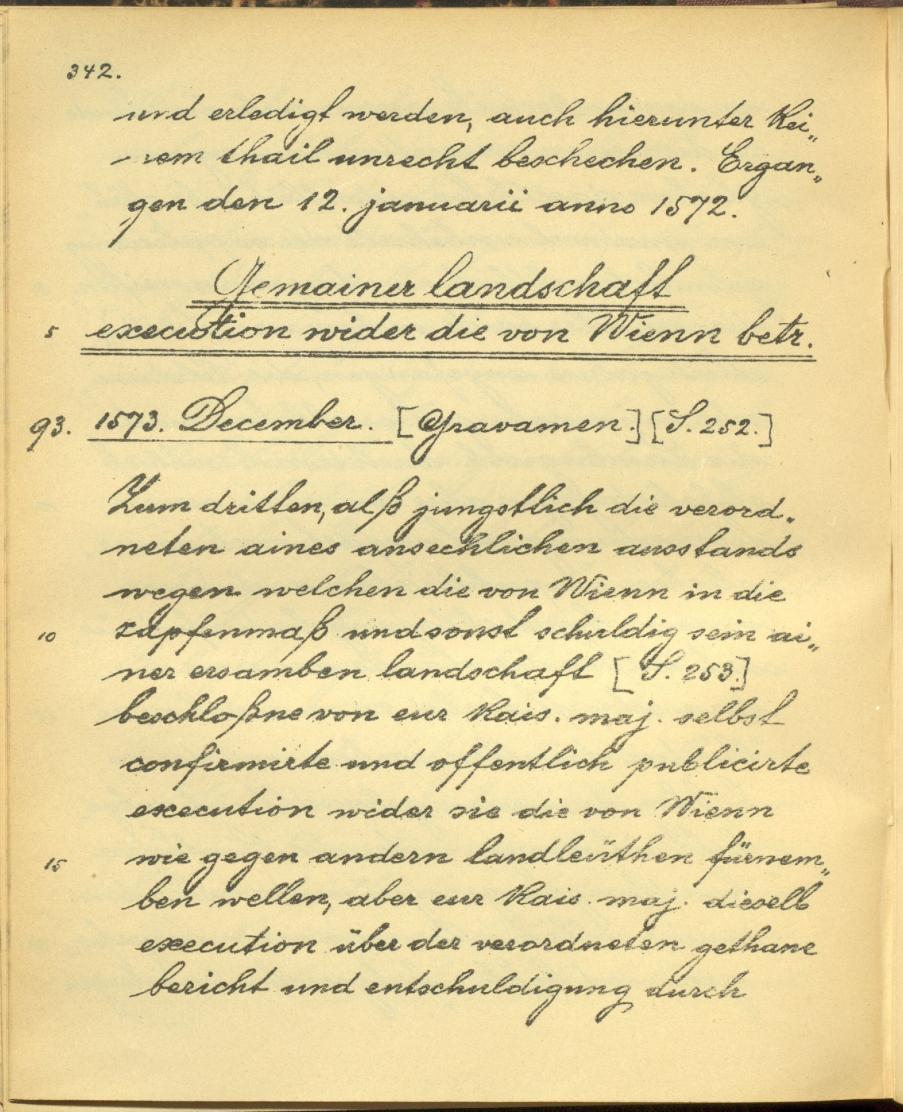 342.
und erledigt werden, auch hierunter kei„
nem thail unrecht beschechen. Ergan„
gen den 12. januarii anno 1572.
Gemainer landschaft
5 execution wider die von Wienn betr.
93. 1573. December. [Gravamen.] [S. 252.]
Zum dritten, alß jungstlich die verord„
neten aines ansechlichen ausstands
wegen welchen die von Wienn in die
10 zäpfenmaß und sonst schuldig sein ai„
ner ersamben landschaft [S. 253.]
beschloßne von eur kais. maj. selbst
confirmirte und offentlich publicirte
execution wider sie die von Wienn
15 wie gegen andern landleüthen fürnem„
ben wellen, aber eur kais. maj. dieselb
execution über der verordneten gethane
bericht und entschuldigung durch